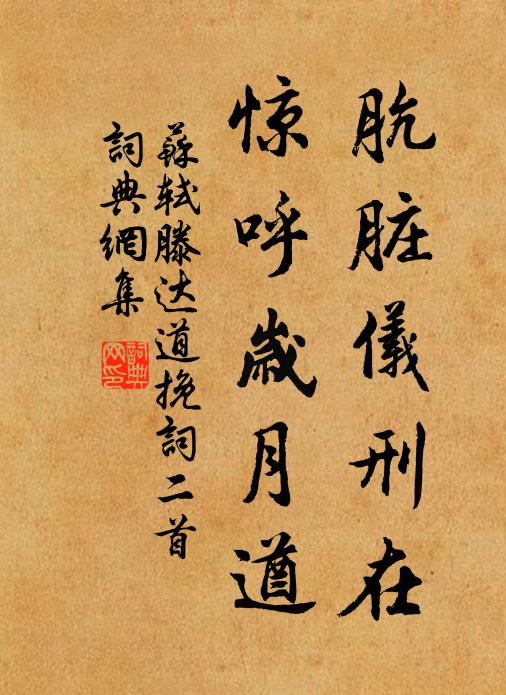 肮脏儀刑在
惊呼嵗月遒
蘇轼滕达道挽詞二首
詞典網集
詞典网印